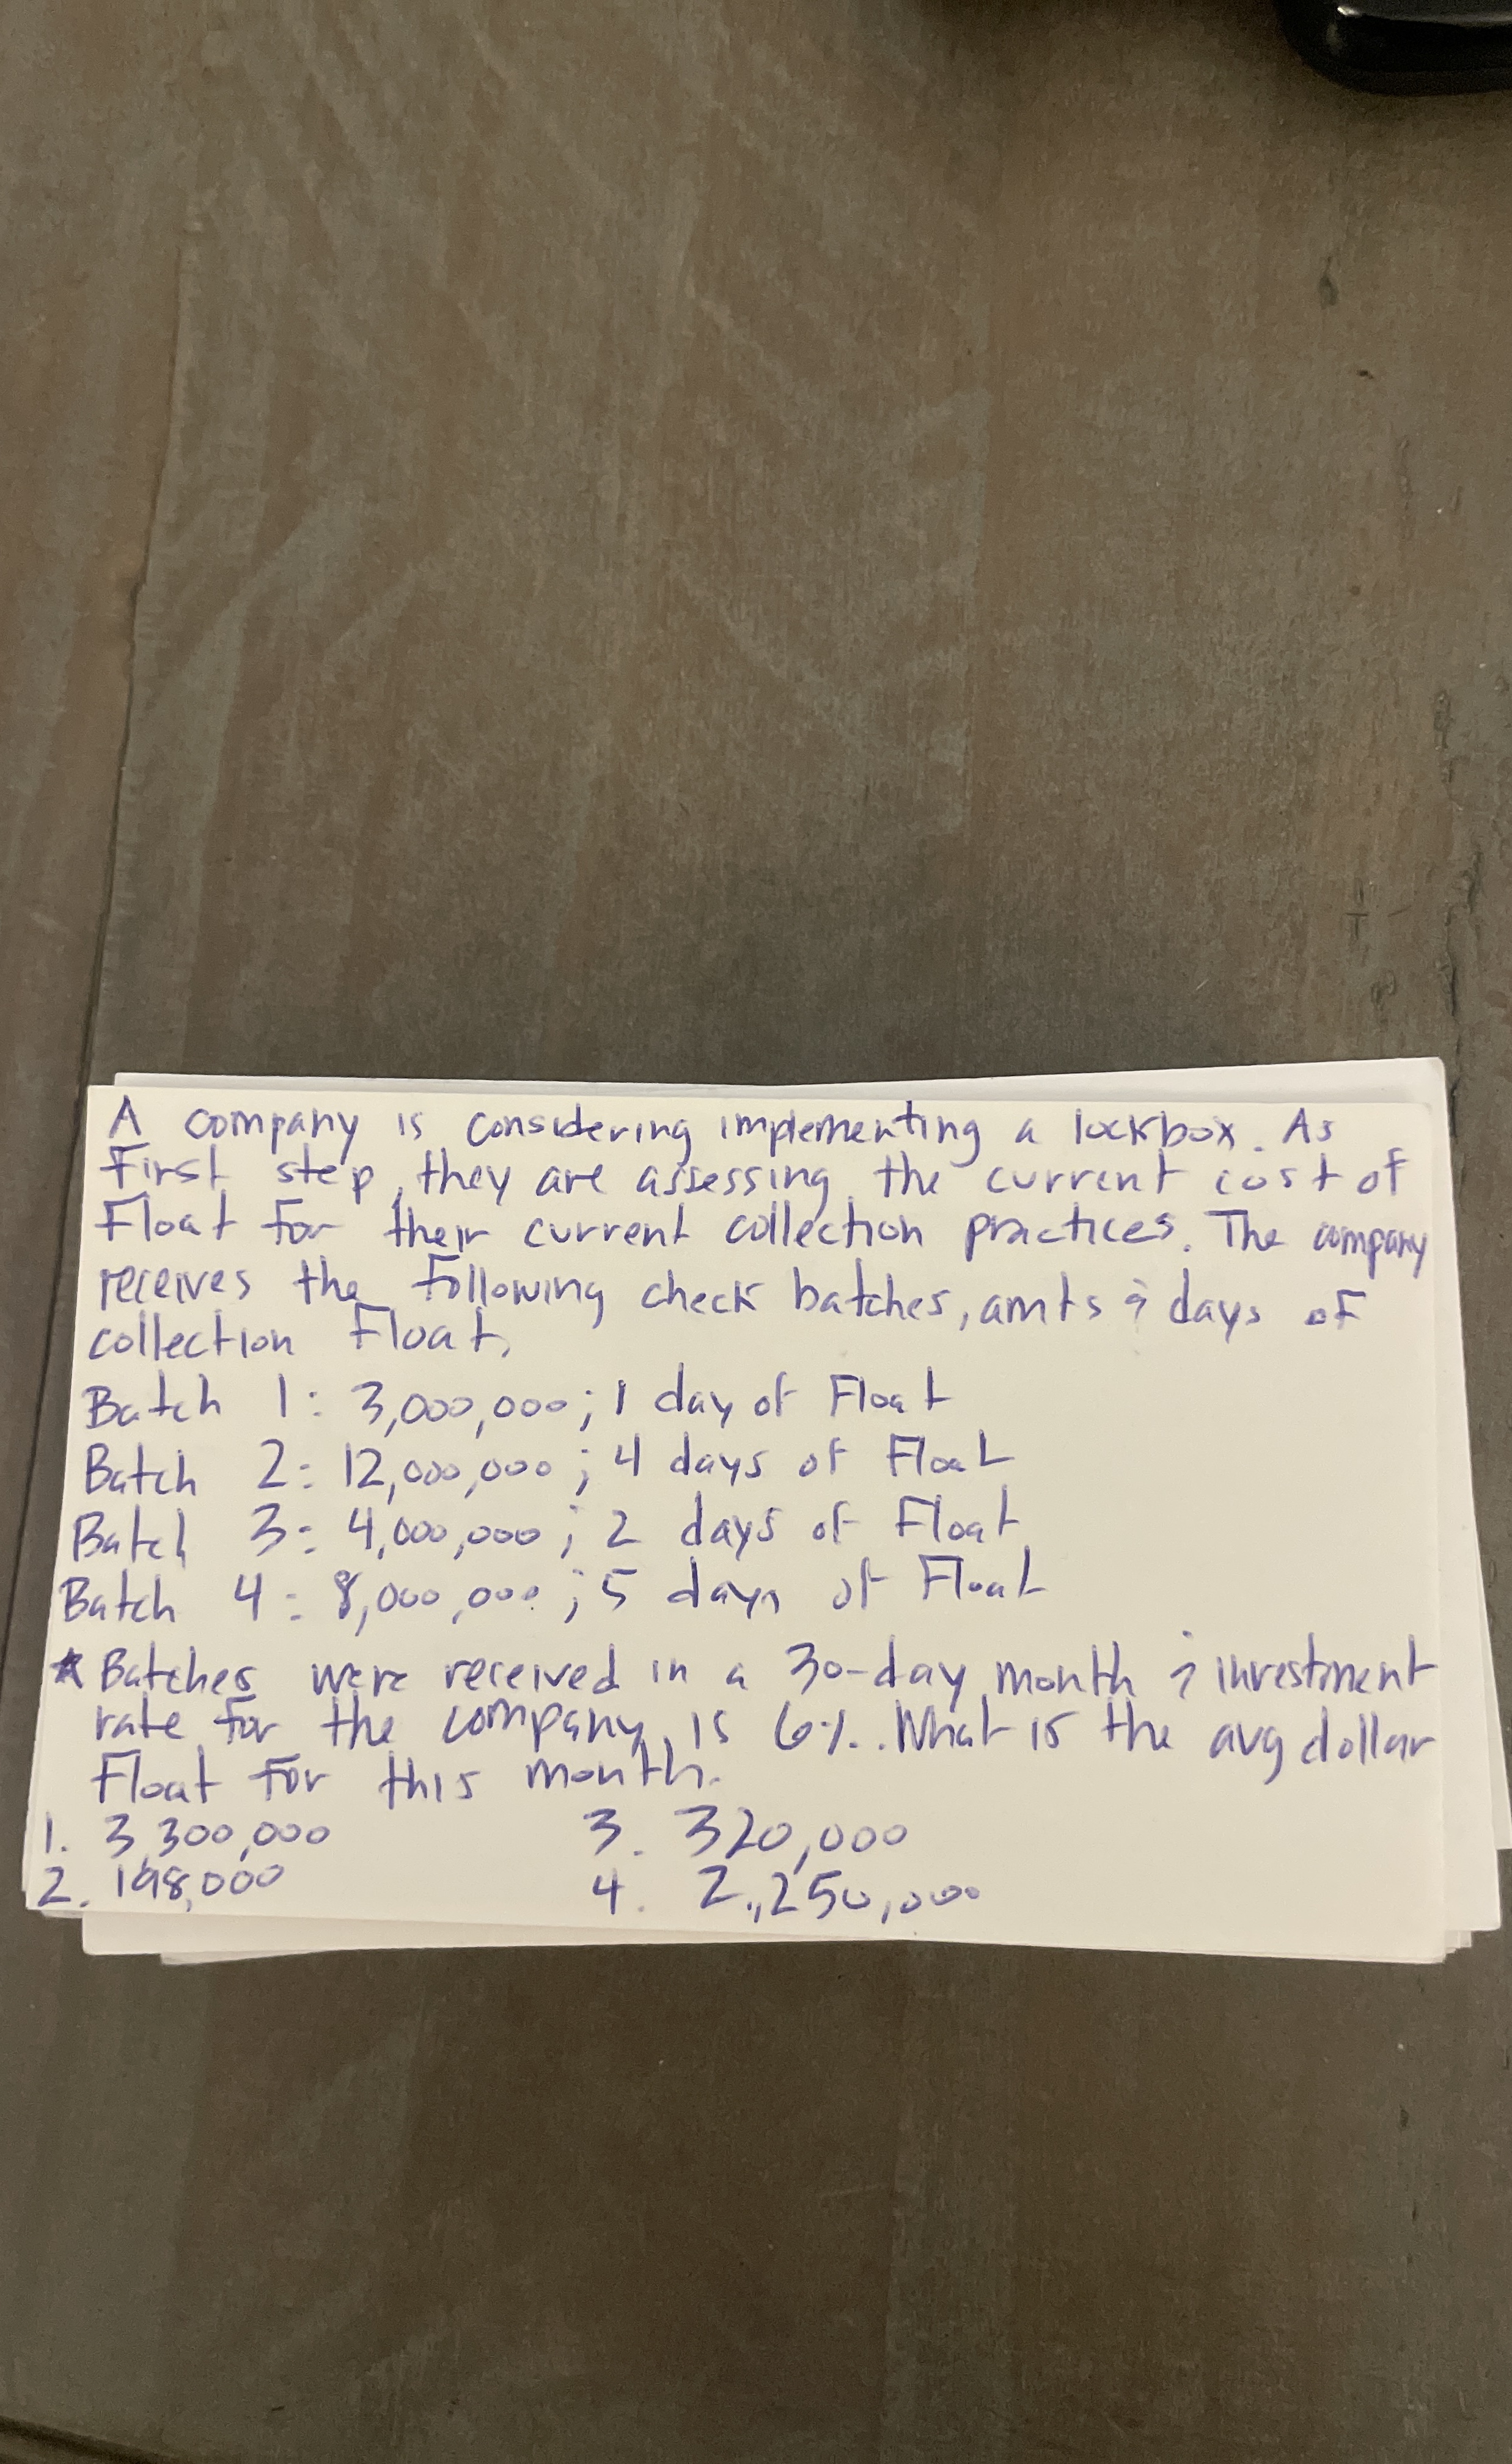 A company is considering implementing a lockbox. As
First step, they are assessing the current cost of
Float for their current collection practices. The company
receives the following check batches, amts & days of
collection Float.
Batch 1: 3,000,000; 1 day of Float
Batch 2: 12,000,000; 4 days of Float
Batch 3: 4,000,000; 2 days of Float
Batch 4: 8,000,000; 5 days of Float
* Batches were received in a 30-day month & investment
rate for the company is 6%. What is the avg dollar
Float for this month.
1. 3,300,000 3. 320,000
2. 198,000 4. 2,250,000